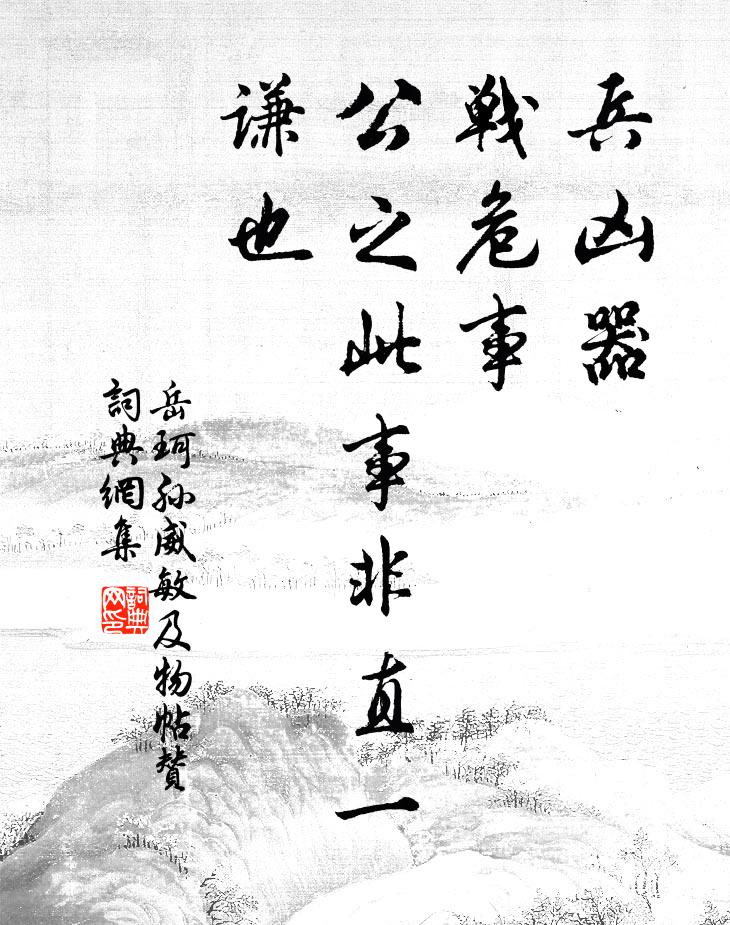 兵凶器
戰危事
公之此事非直一
謙也
岳珂孫威敏及物帖贊
詞典網集
詞典
网印